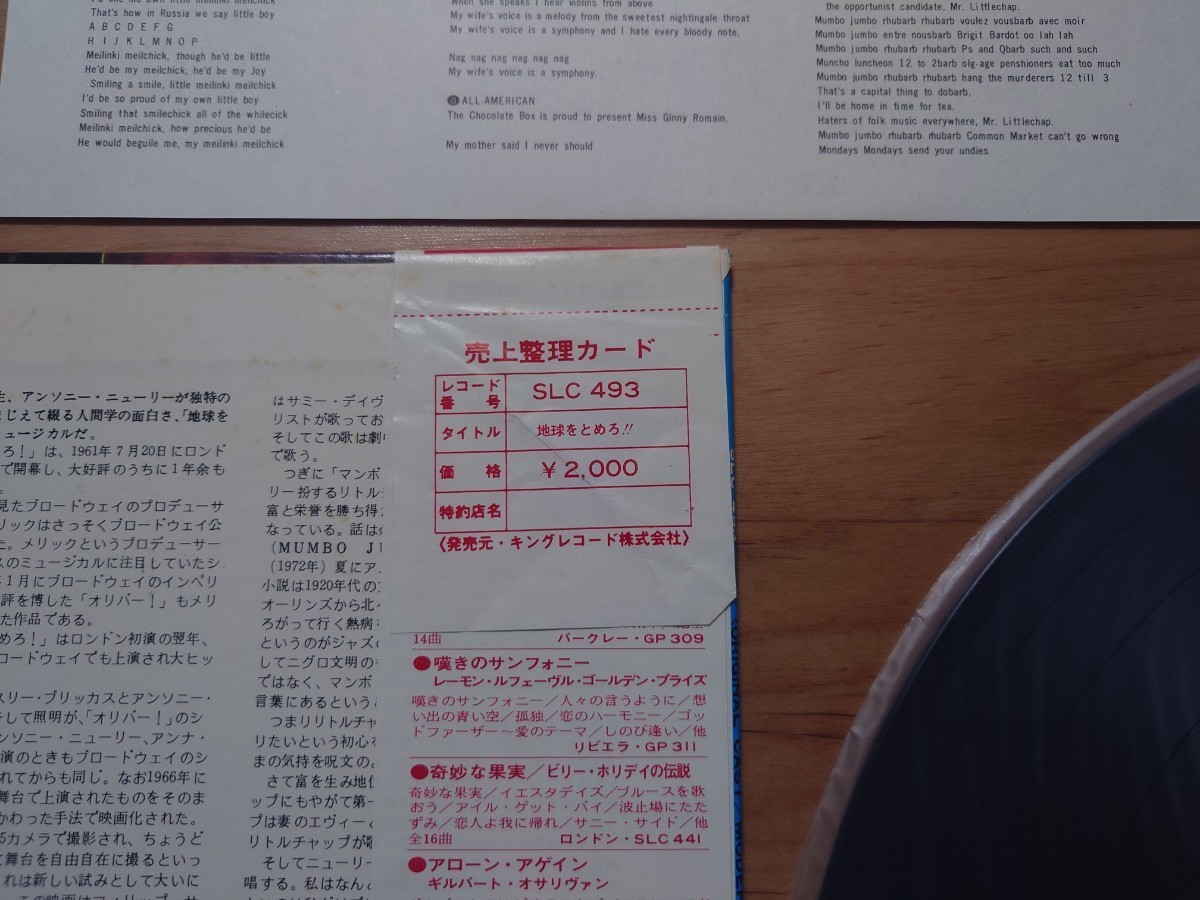 That's how in Russia we say little boy
A B C D E F G
H I J K L M N O P
Meilinki meilchick, though he'd be little
He'd be my meilchick, he'd be my Joy
Smiling a smile, little meilinki meilchick
I'd be so proud of my own little boy
Smiling that smilechick all of the whilecick
Meilinki meilchick, how precious he'd be
He would beguile me, my meilinki meilchick
When she speaks I hear violins from above
My wife's voice is a melody from the sweetest nightingale throat
My wife's voice is a symphony and I hate every bloody note.
Nag nag nag nag nag nag
My wife's voice is a symphony.
ALL-AMERICAN
The Chocolate Box is proud to present Miss Ginny Romain.
My mother said I never should
the opportunist candidate, Mr. Littlechap.
Mumbo jumbo rhubarb rhubarb voulez vousbarb avec moir
Mumbo jumbo entre nousbarb Brigit Bardot oo lah lah
Mumbo jumbo rhubarb rhubarb Ps and Qbarb such and such
Muncho luncheon 12 to 2barb olg-age penshioners eat too much
Mumbo jumbo rhubarb rhubarb hang the murderers 12 till 3
That's a capital thing to dobarb,
I'll be home in time for tea.
Haters of folk music everywhere, Mr. Littlechap.
Mumbo jumbo rhubarb rhubarb Common Market can't go wrong
Mondays Mondays send your undies
、アンソニー・ニューリーが独特の
じえて綴る人間学の面白さ、「地球を
ュージカルだ。
ろ!」は、1961年7月20日にロンド
で開幕し、大好評のうちに1年余も
見たブロードウェイのプロデューサ
リックはさっそくブロードウェイ公
た。メリックというプロデューサー
スのミュージカルに注目していたシ
年1月にブロードウェイのインペリ
評を博した「オリバー!」もメリ
た作品である。
めろ!」はロンドン初演の翌年、
ロードウェイでも上演され大ヒッ
スリー・ブリッカスとアンソニー・
そして照明が、「オリバー!」のシ
ンソニー・ニューリー、アンナ・
演のときもブロードウェイのシ
れてからも同じ。なお1966年に
舞台で上演されたものをそのま
かわった手法で映画化された。
5カメラで撮影され、ちょうど
に舞台を自由自在に撮るといっ
れは新しい試みとして大いに
はサミー・デイヴ
リストが歌ってお
そしてこの歌は劇中
で歌う。
つぎに「マンボ
リー扮するリトル
富と栄誉を勝ち得
なっている。話は
(MUMBO J
(1972年)夏にア
小説は1920年代の
オーリンズから北へ
ろがって行く熱病
というのがジャズ
してニグロ文明の
ではなく、マンボ
言葉にあるという
つまりリトルチャ
りたいという初心を
まの気持を呪文の
さて富を生み地位
ップにもやがて第一
プは妻のエヴィー
リトルチャップが歌
そしてニューリー
唱する。私はなん
売上整理カード
レコード番号 SLC 493
タイトル 地球をとめろ!!
価格 ¥2,000
特約店名
〈発売元・キングレコード株式会社〉
14曲 バークレー・GP 309
●嘆きのサンフォニー
レーモン・ルフェーヴル・ゴールデン・プライズ
嘆きのサンフォニー/人々の言うように/想
い出の青い空/孤独/恋のハーモニー/ゴッ
ドファーザー〜愛のテーマ/しのび逢い/他
リビエラ・GP 311
●奇妙な果実/ビリー・ホリデイの伝説
奇妙な果実/イエスタデイズ/ブルースを歌
おう/アイル・ゲット・バイ/波止場にたた
ずみ/恋人よ我に帰れ/サニー・サイド/他
全16曲 ロンドン・SLC 441
●アローン・アゲイン
ギルバート・オサリヴァン